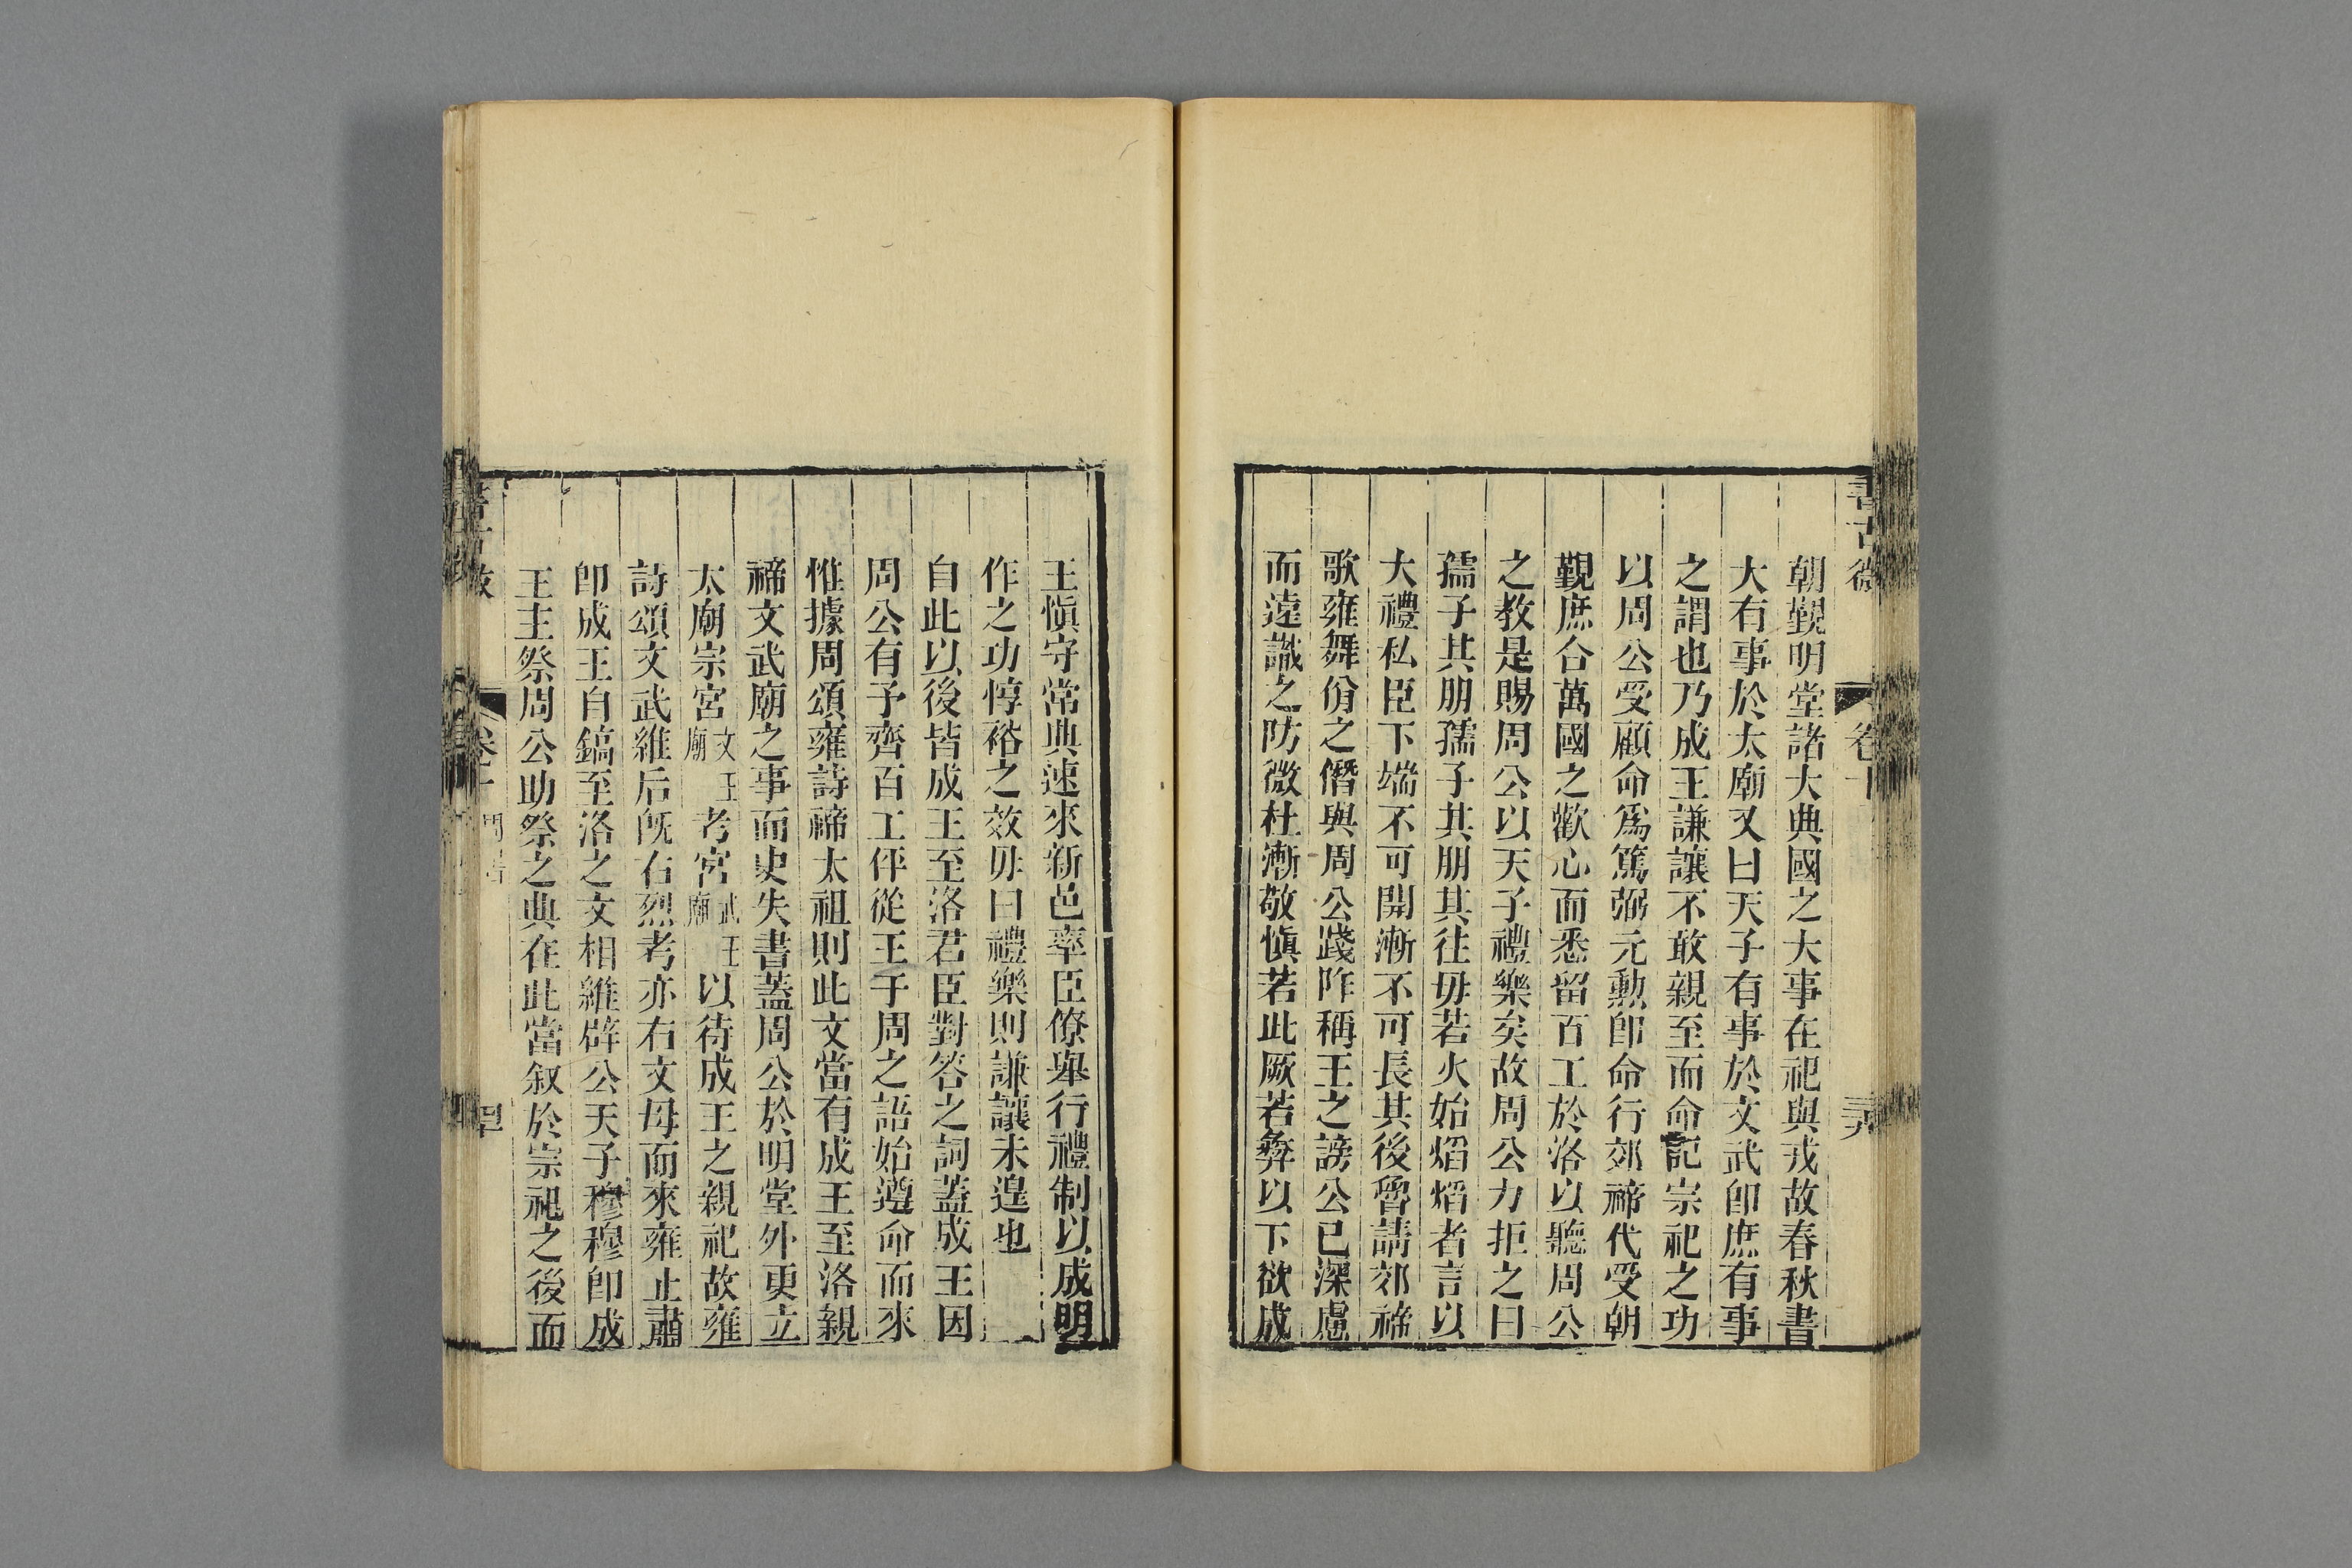 書古微
卷十
朝覲明堂諸大典國之大事在祀與戎故春秋書
大有事於太廟又曰天子有事於文武卽庶有事
之謂也乃成王謙讓不敢親至而命記宗祀之功
以周公受顧命爲篤弼元勲卽命行郊禘代受朝
覲庶合萬國之歡心而悉留百工於洛以聽周公
之教是賜周公以天子禮樂矣故周公力拒之曰
孺子其朋孺子其朋其往毋若火始熖熖者言以
大禮私臣下端不可開漸不可長其後魯請郊禘
歌雍舞佾之僭與周公踐阼稱王之謗公已深慮
而遠譏之防微杜漸敬愼若此厥若彝以下欲成
王愼守常典速來新邑率臣僚舉行禮制以成明
作之功惇裕之效毋曰禮樂則謙讓未遑也
自此以後皆成王至洛君臣對答之詞蓋成王因
周公有予齊百工伻從王于周之語始遵命而來
惟據周頌雍詩禘太祖則此文當有成王至洛親
禘文武廟之事而史失書蓋周公於明堂外更立
太廟宗宮文王廟考宮武王廟以待成王之親祀故雍
詩頌文武維后旣右烈考亦右文母而來雍止肅
卽成王自鎬至洛之文相維辟公天子穆穆卽成
王主祭周公助祭之典在此當叙於宗祀之後而